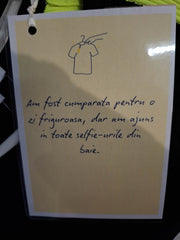 Am fost cumparata pentru o
zi friguroasa, dar am ajuns
in toate selfie-urile din
baie.